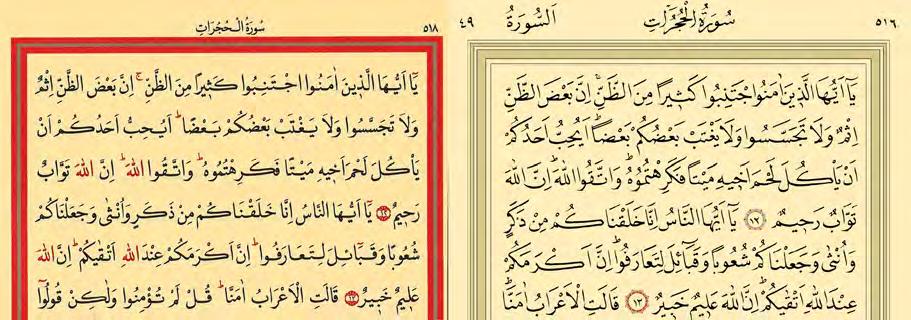 سُورَةُ الْحُجُرَاتِ ٥١٨
يَٓا اَيُّهَا الَّذ۪ينَ اٰمَنُوا اجْتَنِبُوا كَث۪يرًا مِنَ الظَّنِّۘ اِنَّ بَعْضَ الظَّنِّ اِثْمٌ
وَلَا تَجَسَّسُوا وَلَا يَغْتَبْ بَعْضُكُمْ بَعْضًاۜ اَيُحِبُّ اَحَدُكُمْ اَنْ
يَأْكُلَ لَحْمَ اَخ۪يهِ مَيْتًا فَكَرِهْتُمُوهُۜ وَاتَّقُوا اللّٰهَۜ اِنَّ اللّٰهَ تَوَّابٌ
رَح۪يمٌ ﴿١٢﴾ يَٓا اَيُّهَا النَّاسُ اِنَّا خَلَقْنَاكُمْ مِنْ ذَكَرٍ وَاُنْثٰى وَجَعَلْنَاكُمْ
شُعُوبًا وَقَبَٓائِلَ لِتَعَارَفُواۜ اِنَّ اَكْرَمَكُمْ عِنْدَ اللّٰهِ اَتْقٰيكُمْۜ اِنَّ اللّٰهَ
عَل۪يمٌ خَب۪يرٌ ﴿١٣﴾ قَالَتِ الْاَعْرَابُ اٰمَنَّاۜ قُلْ لَمْ تُؤْمِنُوا وَلٰكِنْ قُولُٓوا
٥١٦ سُورَةُ الْحُجُرَاتِ اَلسُّورَةُ ٤٩
يَٓا اَيُّهَا الَّذ۪ينَ اٰمَنُوا اجْتَنِبُوا كَث۪يرًا مِنَ الظَّنِّۘ اِنَّ بَعْضَ الظَّنِّ
اِثْمٌ وَلَا تَجَسَّسُوا وَلَا يَغْتَبْ بَعْضُكُمْ بَعْضًاۜ اَيُحِبُّ اَحَدُكُمْ
اَنْ يَأْكُلَ لَحْمَ اَخ۪يهِ مَيْتًا فَكَرِهْتُمُوهُۜ وَاتَّقُوا اللّٰهَۜ اِنَّ اللّٰهَ
تَوَّابٌ رَح۪يمٌ ﴿١٢﴾ يَٓا اَيُّهَا النَّاسُ اِنَّا خَلَقْنَاكُمْ مِنْ ذَكَرٍ
وَاُنْثٰى وَجَعَلْنَاكُمْ شُعُوبًا وَقَبَٓائِلَ لِتَعَارَفُواۜ اِنَّ اَكْرَمَكُمْ
عِنْدَ اللّٰهِ اَتْقٰيكُمْۜ اِنَّ اللّٰهَ عَل۪يمٌ خَب۪يرٌ ﴿١٣﴾ قَالَتِ الْاَعْرَابُ اٰمَنَّاۜ